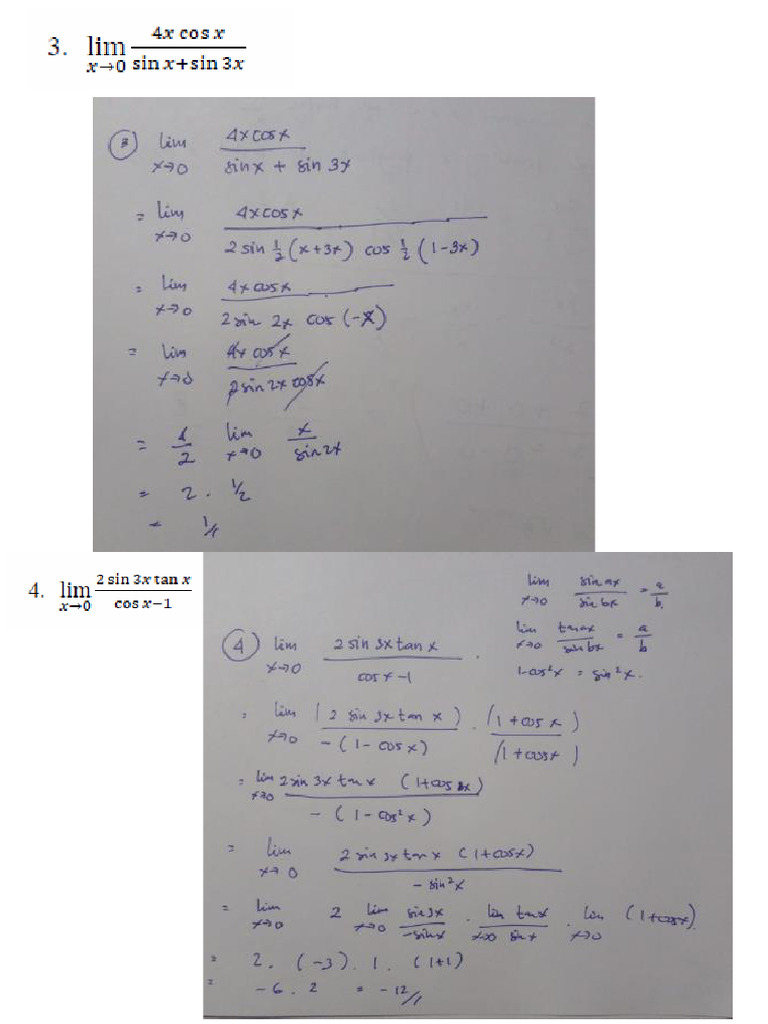 3. lim x→0 4x cos x / sin x+sin 3x
③ lim x→0 4x cos x / sin x + sin 3x
= lim x→0 4x cos x / 2 sin ½ (x+3x) cos ½ (1-3x)
= lim x→0 4x cos x / 2 sin 2x cos (-x)
= lim x→0 4x cos x / 2 sin 2x cos x
= 4/2 lim x→0 x / sin 2x
= 2 . 1/2
= 1//
4. lim x→0 2 sin 3x tan x / cos x−1
lim x→0 sin ax / sin bx = a/b
lim x→0 tan ax / sin bx = a/b
1-cos²x = sin²x.
④ lim x→0 2 sin 3x tan x / cos x -1
= lim x→0 (2 sin 3x tan x) / -(1- cos x) . (1+cos x) / (1+cos x)
= lim x→0 2 sin 3x tan x (1+cos x) / - (1- cos²x)
= lim x→0 2 sin 3x tan x (1+cos x) / - sin²x
= lim x→0 2 lim x→0 sin 3x / -sin x . lim x→0 tan x / sin x . lim x→0 (1+cos x).
= 2. (-3). 1. (1+1)
= -6 . 2 = -12//